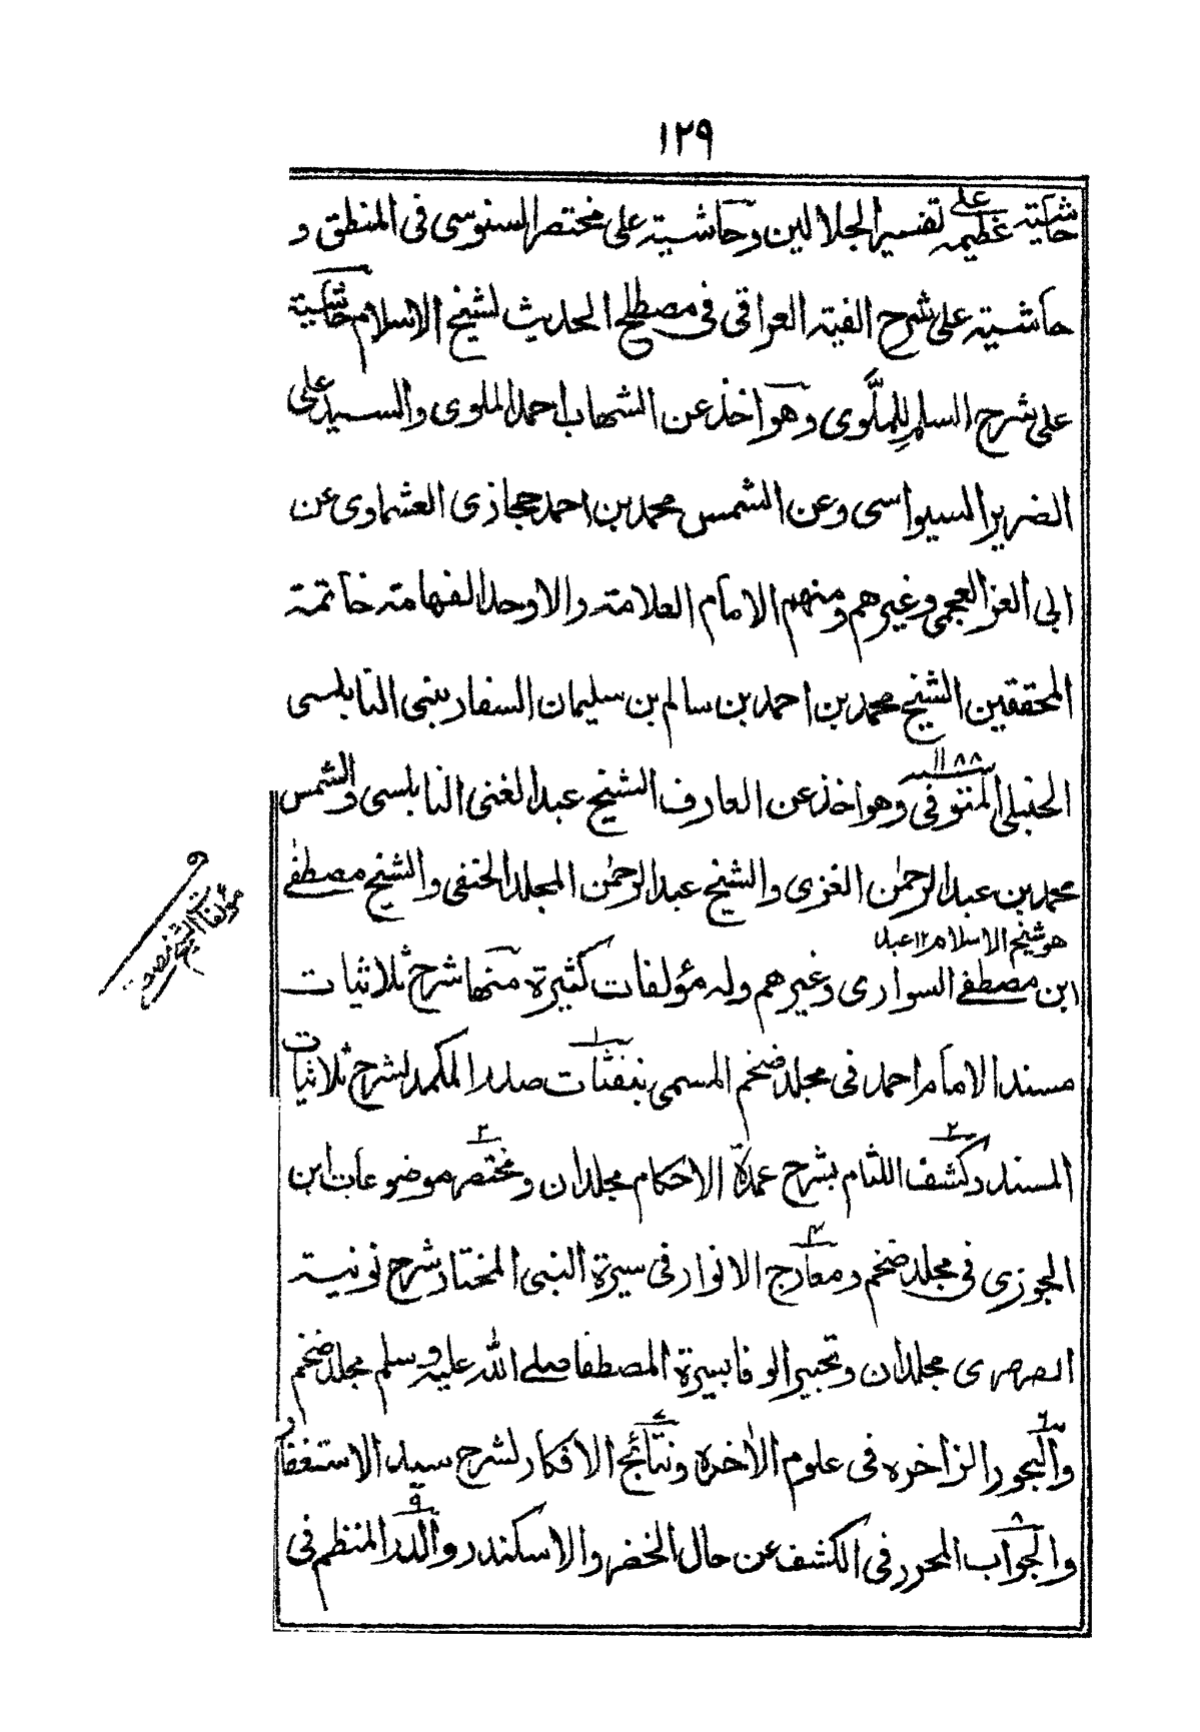 ١٢٩
حاشية عظيمة على تفسير الجلالين وحاشية على مختصر السنوسى فى المنطق و
حاشية على شرح الفية العراقى فى مصطلح الحديث لشيخ الاسلام حاشية
على شرح السلم للملّوى وهو اخذ عن الشهاب احمد الملوى والسيد على
الضرير السيواسى وعن الشمس محمد بن احمد حجازى العشماوى عن
ابى العز العجمى وغيرهم ومنهم الامام العلامة والاوحد الفهامة خاتمة
المحققين الشيخ محمد بن احمد بن سالم بن سليمان السفارينى النابلسى
١١٨٨
الحنبلى المتوفى سنة وهو اخذ عن العارف الشيخ عبد الغنى النابلسى والشمس
محمد بن عبد الرحمٰن الغزى والشيخ عبد الرحمٰن المجلد الحنفى والشيخ مصطفٰى
هو شيخ الاسلام ١٢ عبد
ابن مصطفى السوارى وغيرهم وله مؤلفات كثيرة منها شرح ثلاثيات
مؤلفات الشيخ
١
مسند الامام احمد فى مجلد ضخم المسمى بنفثات صدر المكمد لشرح ثلاثيات
٢ ٣
المسند وكشف اللثام بشرح عمدة الاحكام مجلدان ومختصر موضوعات ابن
٤
الجوزى فى مجلد ضخم ومعارج الانوار فى سيرة النبى المختار شرح نونية
الصرصرى مجلدان وتحبير الوفا بسيرة المصطفا صلى الله عليه وسلم مجلد ضخم
٦ ٧
والبحور الزاخره فى علوم الاٰخره ونتائج الافكار لشرح سيد الاستغفار
٨ ٩
والجواب المحرر فى الكشف عن حال الخضر والاسكندر والدر المنظم فى